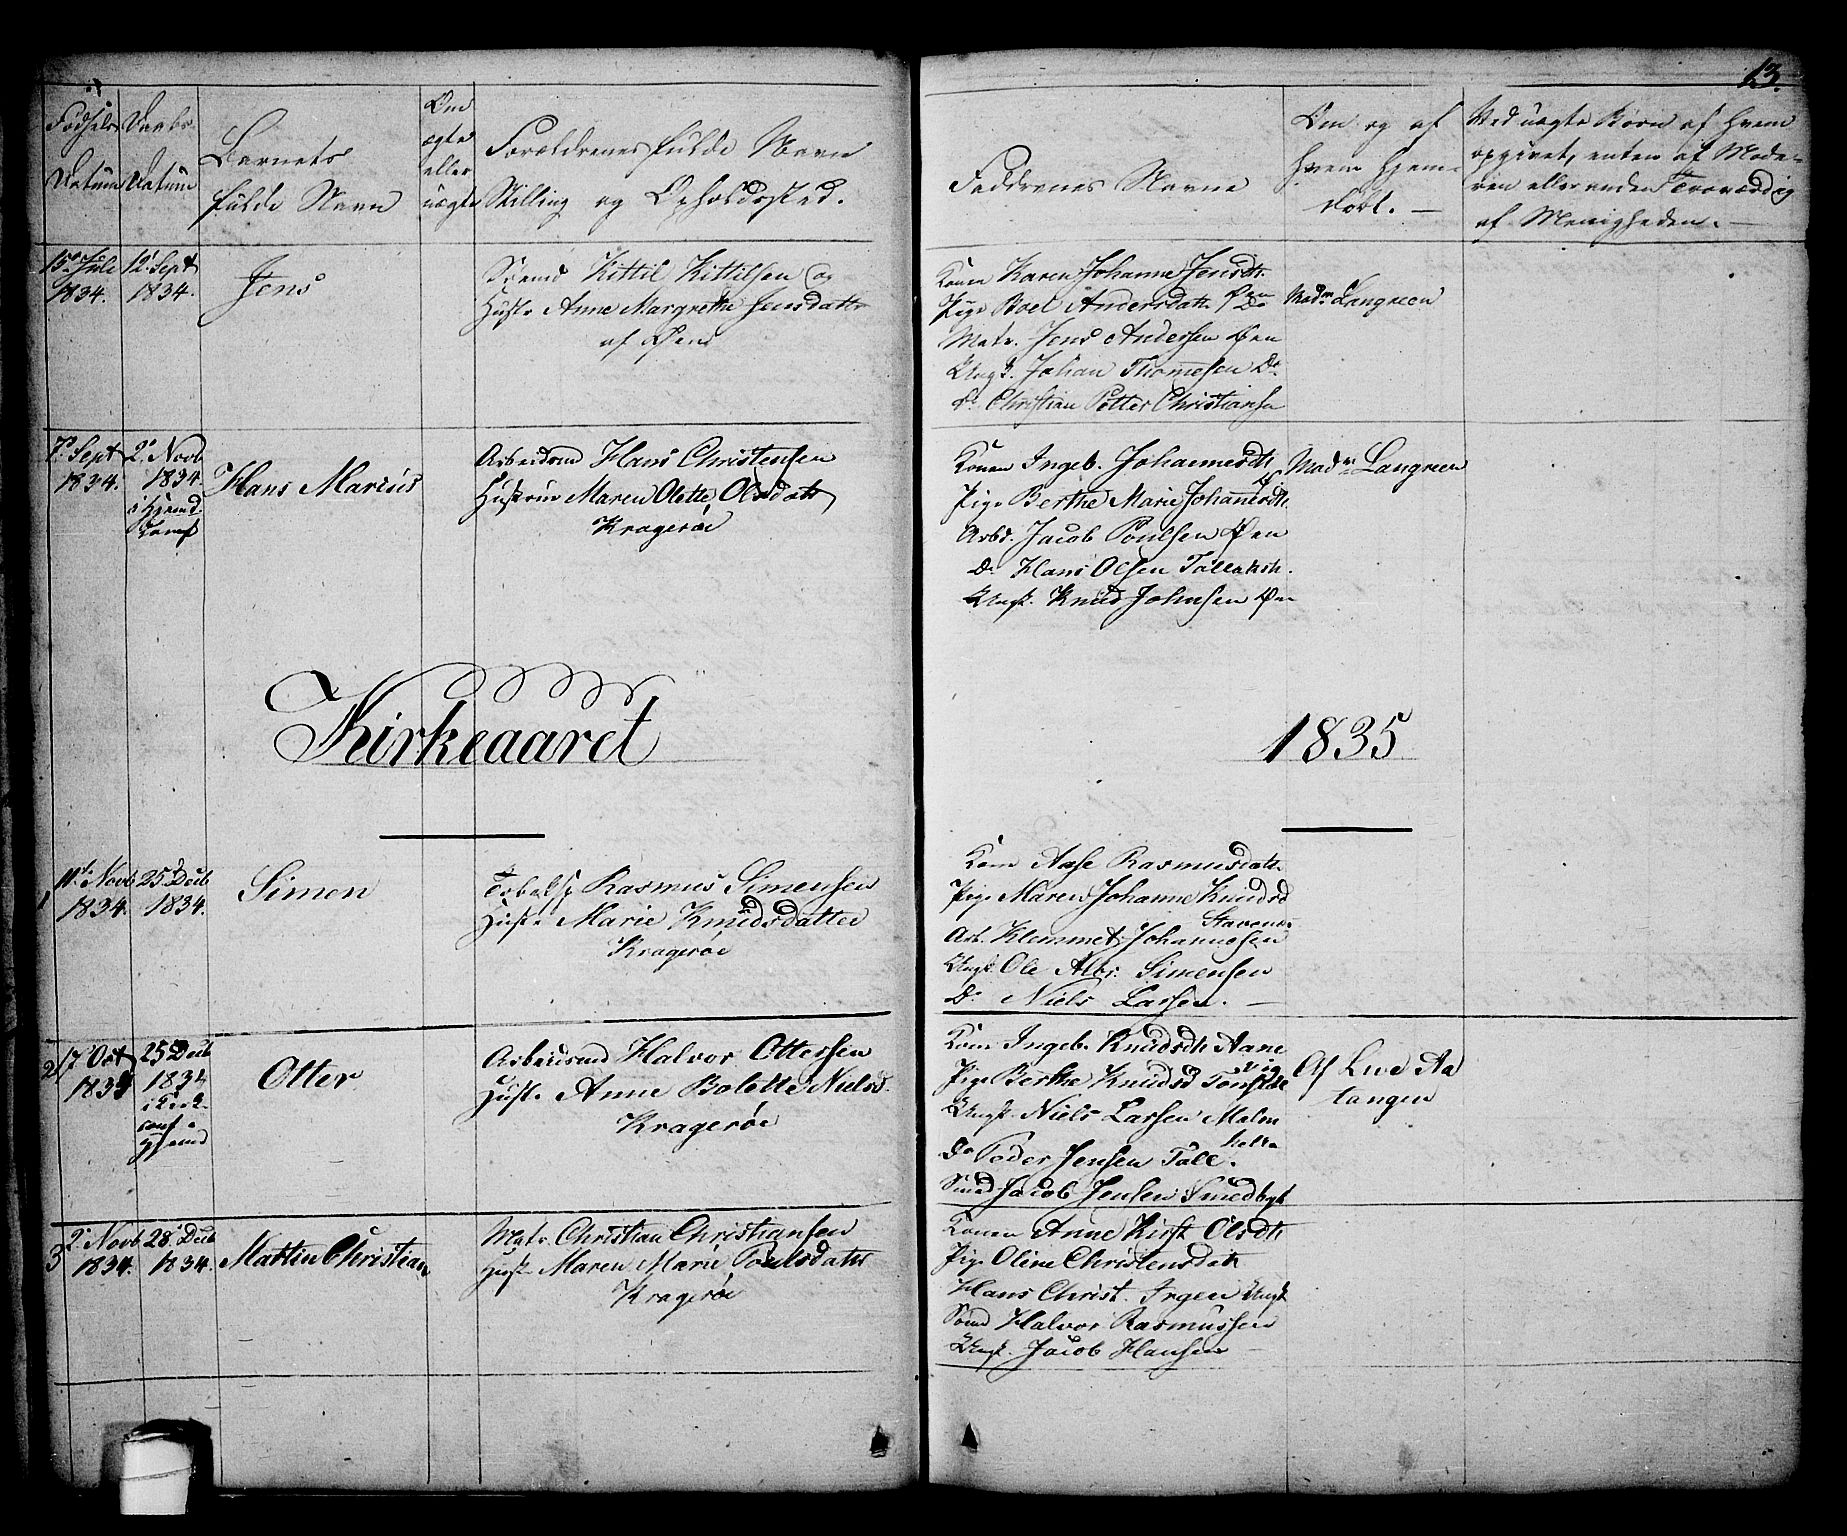 13.
Fødsels
Datum
Daabs
Datum
Barnets
fulde Navn
Om
ægte
eller
uægte
Forældrenes fulde Navn
Stilling og Opholdssted.
Faddrenes Navne
Om og af
hvem Hjem-
døbt. —
Ved uægte Børn af hvem
opgivet, enten af Mode-
ren eller anden Troværdig
af Menigheden. —
15de Juli
1834.
12 Sept
1834.
Jens
Kittil Kittilsen og
Hustr Anne Margrethe Jensdattr
af Øen
Konen Karen Johanne Jensdtr.
Pige Boel Andersdatr. Øen
Matr. Jens Andersen Øen
Ungk. Johan Thomesen Do
Do Christian Petter Christiansen
Madm Langreen
7de Sept
1834.
2 Novb
1834.
i Hjemd.
Conf
Hans Marius
Arbeidsmd Hans Christensen
Hustrue Maren Olette Olsdatr
Kragerøe
Konen Ingeb. Johannesdtr
Pige Berthe Marie Johannesdtr.
Arbd. Jacob Poulsen Øen
Do Hans Olsen
Ungk. Knud Johnsen Øen
Madm Langreen
Kirkeaaret 1835
1
11te Novb
1834.
25 Decb
1834.
Simon
Rasmus Simensen
Hustr Marie Knudsdatter
Kragerøe
Kone Aase Rasmusdatr
Pige Maren Johanne Knudsd
Arb. Klemmet Johannesen
Ungk. Ole Abr. Simensen
Do Niels Larsen. —
2
17 Oct
1834
25 Decb
1834
i Kirk.
conf.
Hjemd
Otter
Arbeidsmd Halvor Ottersen
Hustr Anne Bolette Nielsd.
Kragerøe
Kone Ingeb. Knudsdtr
Pige Berthe Knudsd
Ungk. Niels Larsen Malm
Do Peder Jensen Tall.
Smed Jacob Jensen Smedbgt
Af
tangen
3
2 Novb
1834.
28 Decb
1834.
Mattin Christian
Matr. Christian Christiansen
Hustr Maren Marie Poulsdatr
Kragerøe
Konen Anne Kirst Olsdtr
Pige Oline Christensdatr
Hans Christ. Irgen Ungk
Halvor Rasmussen
Ungk. Jacob Hansen —